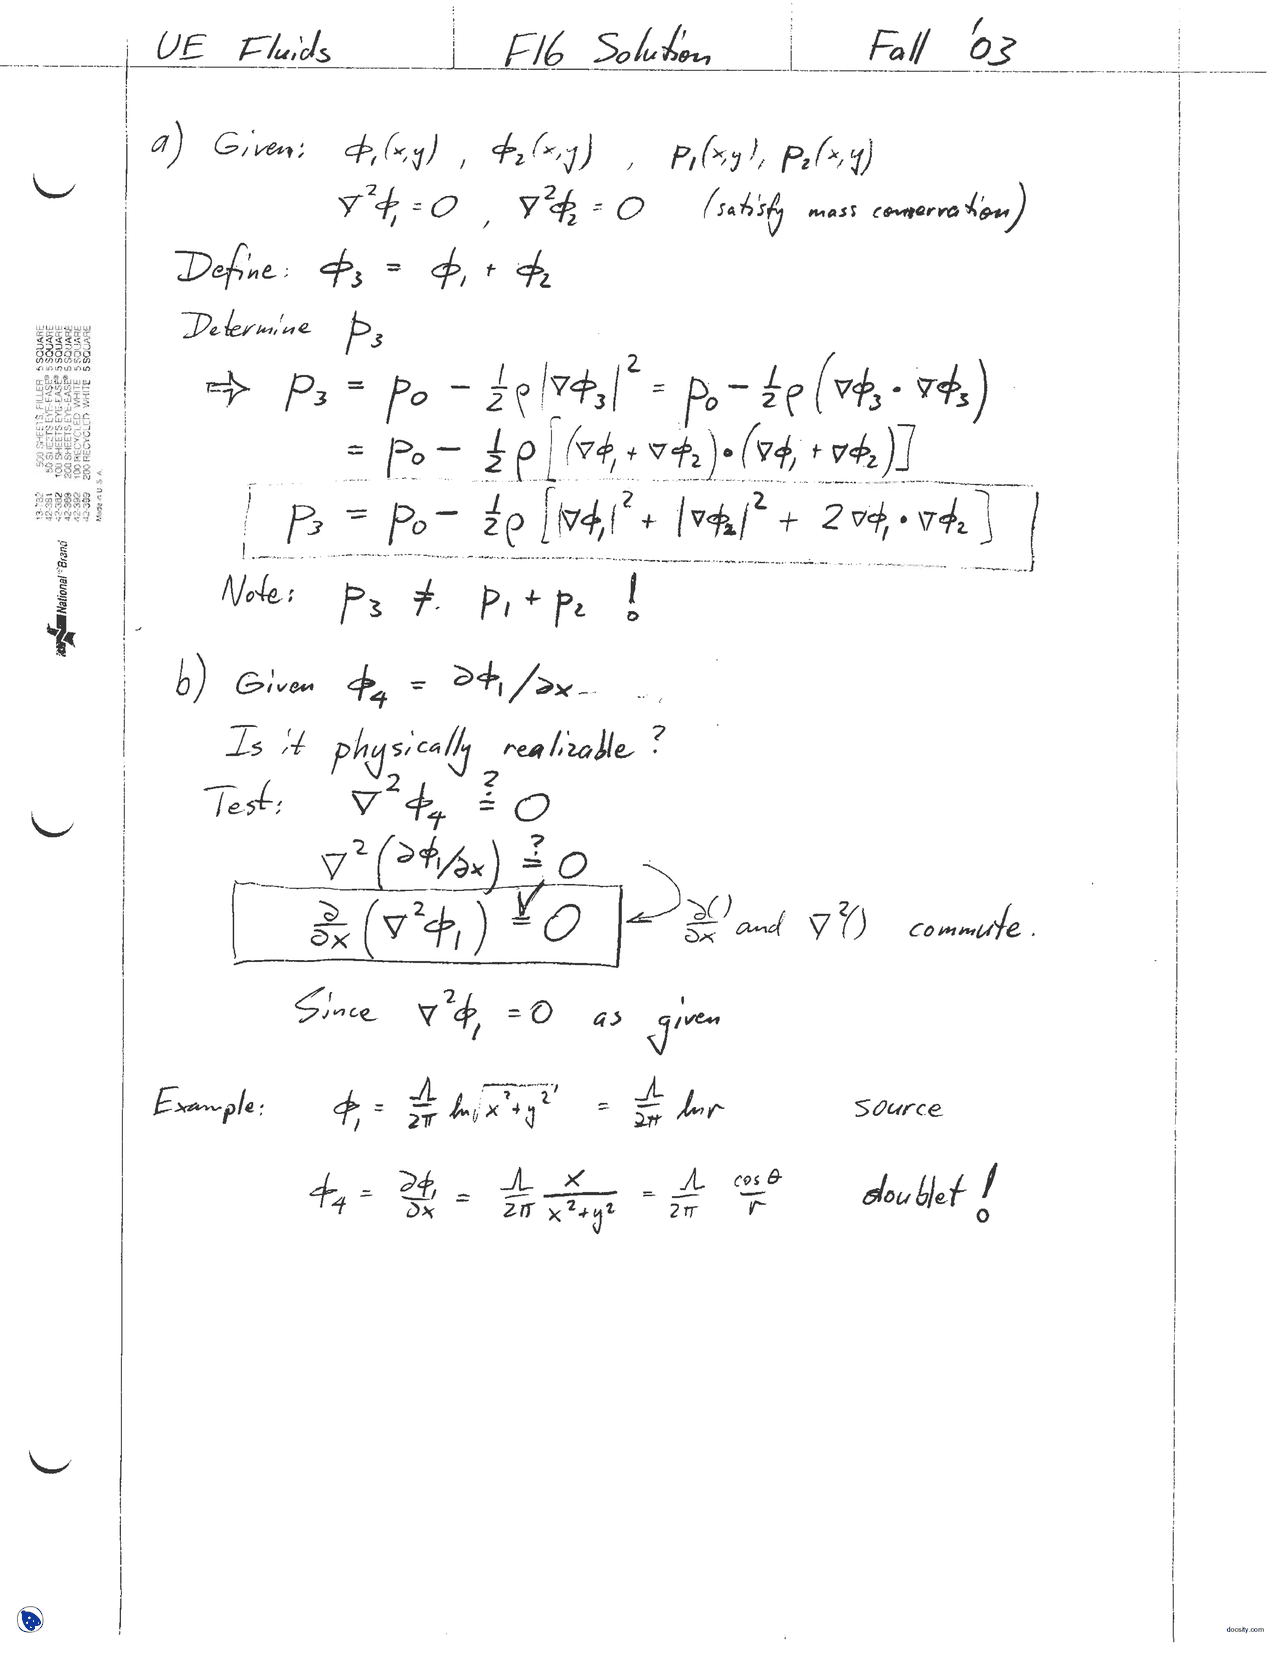 UE Fluids F16 Solution Fall '03
a) Given: ϕ₁(x,y) , ϕ₂(x,y) , p₁(x,y), p₂(x,y)
∇²ϕ₁ = 0 , ∇²ϕ₂ = 0 (satisfy mass conservation)
Define: ϕ₃ = ϕ₁ + ϕ₂
Determine p₃
⇒ p₃ = p₀ − ½ρ|∇ϕ₃|² = p₀ − ½ρ(∇ϕ₃ · ∇ϕ₃)
= p₀ − ½ρ[(∇ϕ₁ + ∇ϕ₂)·(∇ϕ₁ + ∇ϕ₂)]
p₃ = p₀ − ½ρ[|∇ϕ₁|² + |∇ϕ₂|² + 2∇ϕ₁·∇ϕ₂]
Note: p₃ ≠ p₁ + p₂ !
b) Given ϕ₄ = ∂ϕ₁/∂x
Is it physically realizable?
Test: ∇²ϕ₄ ≟ 0
∇²(∂ϕ₁/∂x) ≟ 0
∂/∂x (∇²ϕ₁) =✓ 0 ← ∂()/∂x and ∇²() commute.
Since ∇²ϕ₁ = 0 as given
Example: ϕ₁ = Λ/2π ln√(x²+y²) = Λ/2π ln r source
ϕ₄ = ∂ϕ₁/∂x = Λ/2π x/(x²+y²) = Λ/2π cosθ/r doublet!
13-782 500 SHEETS, FILLER 5 SQUARE
42-381 50 SHEETS EYE-EASE® 5 SQUARE
42-382 100 SHEETS EYE-EASE® 5 SQUARE
42-389 200 SHEETS EYE-EASE® 5 SQUARE
42-392 100 RECYCLED WHITE 5 SQUARE
42-399 200 RECYCLED WHITE 5 SQUARE
Made in U.S.A.
National® Brand
docsity.com